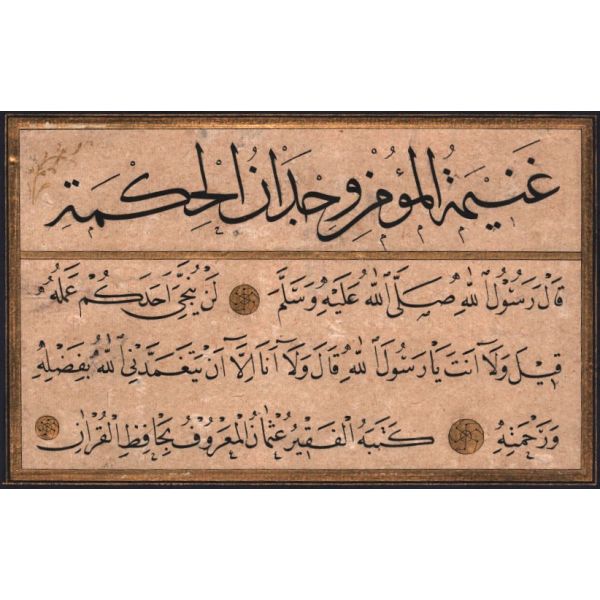 غَنِيمَةُ الْمُؤْمِنِ وِجْدَانُ الْحِكْمَةِ
قَالَ رَسُولُ اللّٰهِ صَلَّى اللّٰهُ عَلَيْهِ وَسَلَّمَ لَنْ يُنَجِّيَ اَحَدَكُمْ عَمَلُهُ
قِيلَ وَلَا اَنْتَ يَا رَسُولَ اللّٰهِ قَالَ وَلَا اَنَا اِلَّا اَنْ يَتَغَمَّدَنِيَ اللّٰهُ بِفَضْلِهِ
وَرَحْمَتِهِ كَتَبَهُ الْفَقِيرُ عُثْمَانُ الْمَعْرُوفُ بِحَافِظِ الْقُرْاٰنِ